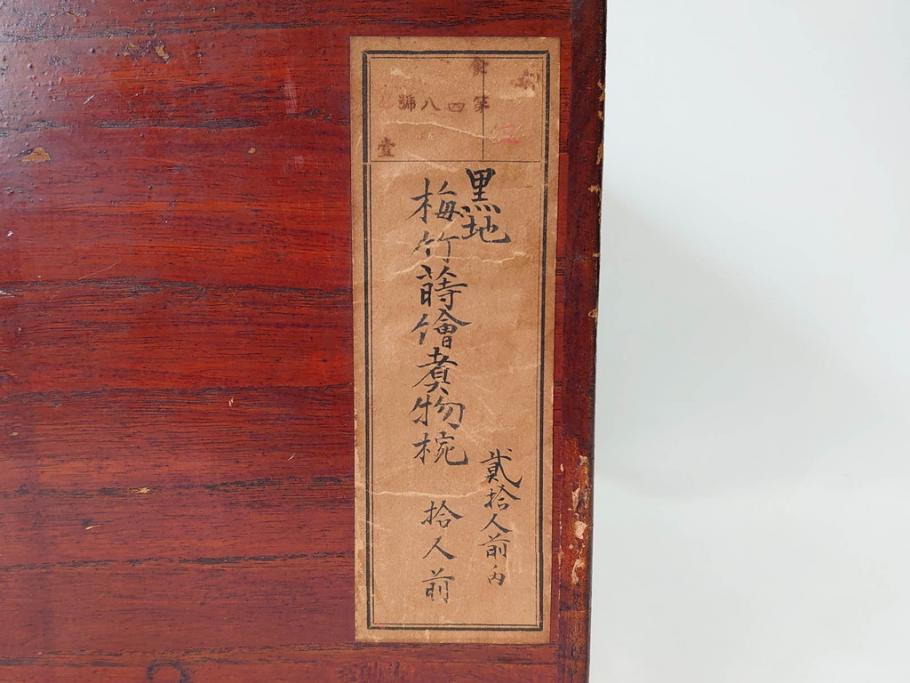 第四八號
壹
黒地
梅竹蒔繪煮物椀
貳拾人前内
拾人前